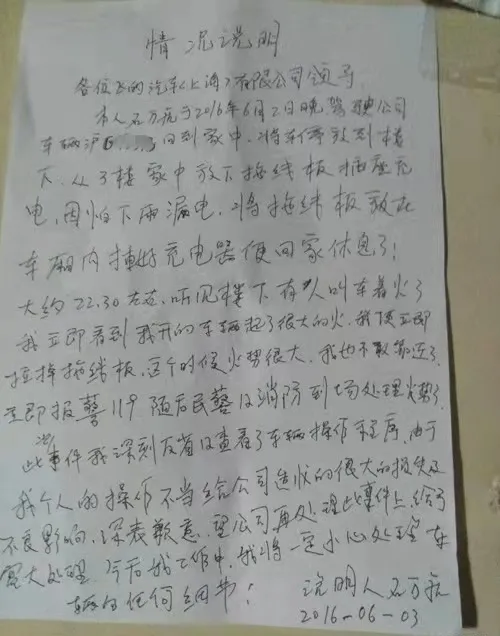 情况说明
各位飞的汽车(上海)有限公司领导
本人石万 于2016年6月2日晚驾驶公司
车辆沪G 回到家中，将车停放到楼
下，从3楼家中放下拖线板插座充
电，因怕下雨漏电，将拖线板放在
车厢内插好充电器便回家休息了！
大约22.30左右，听见楼下有人叫车着火了
我立即看到我开的车辆起了很大的火，我便立即
拉掉拖线板，这个时侯火势很大，我也不敢靠近了，
立即报警119 随后民警及消防到场处理火势了，
对此事件我深刻反省及查看了车辆操作程序，由于
我个人的操作不当给公司造成的很大的损失及
不良影响，深表歉意，望公司再处理此事件上，给予
宽大处理，今后我工作中，我将一定小心处理车
辆的任何细节！
说明人 石万
2016-06-03